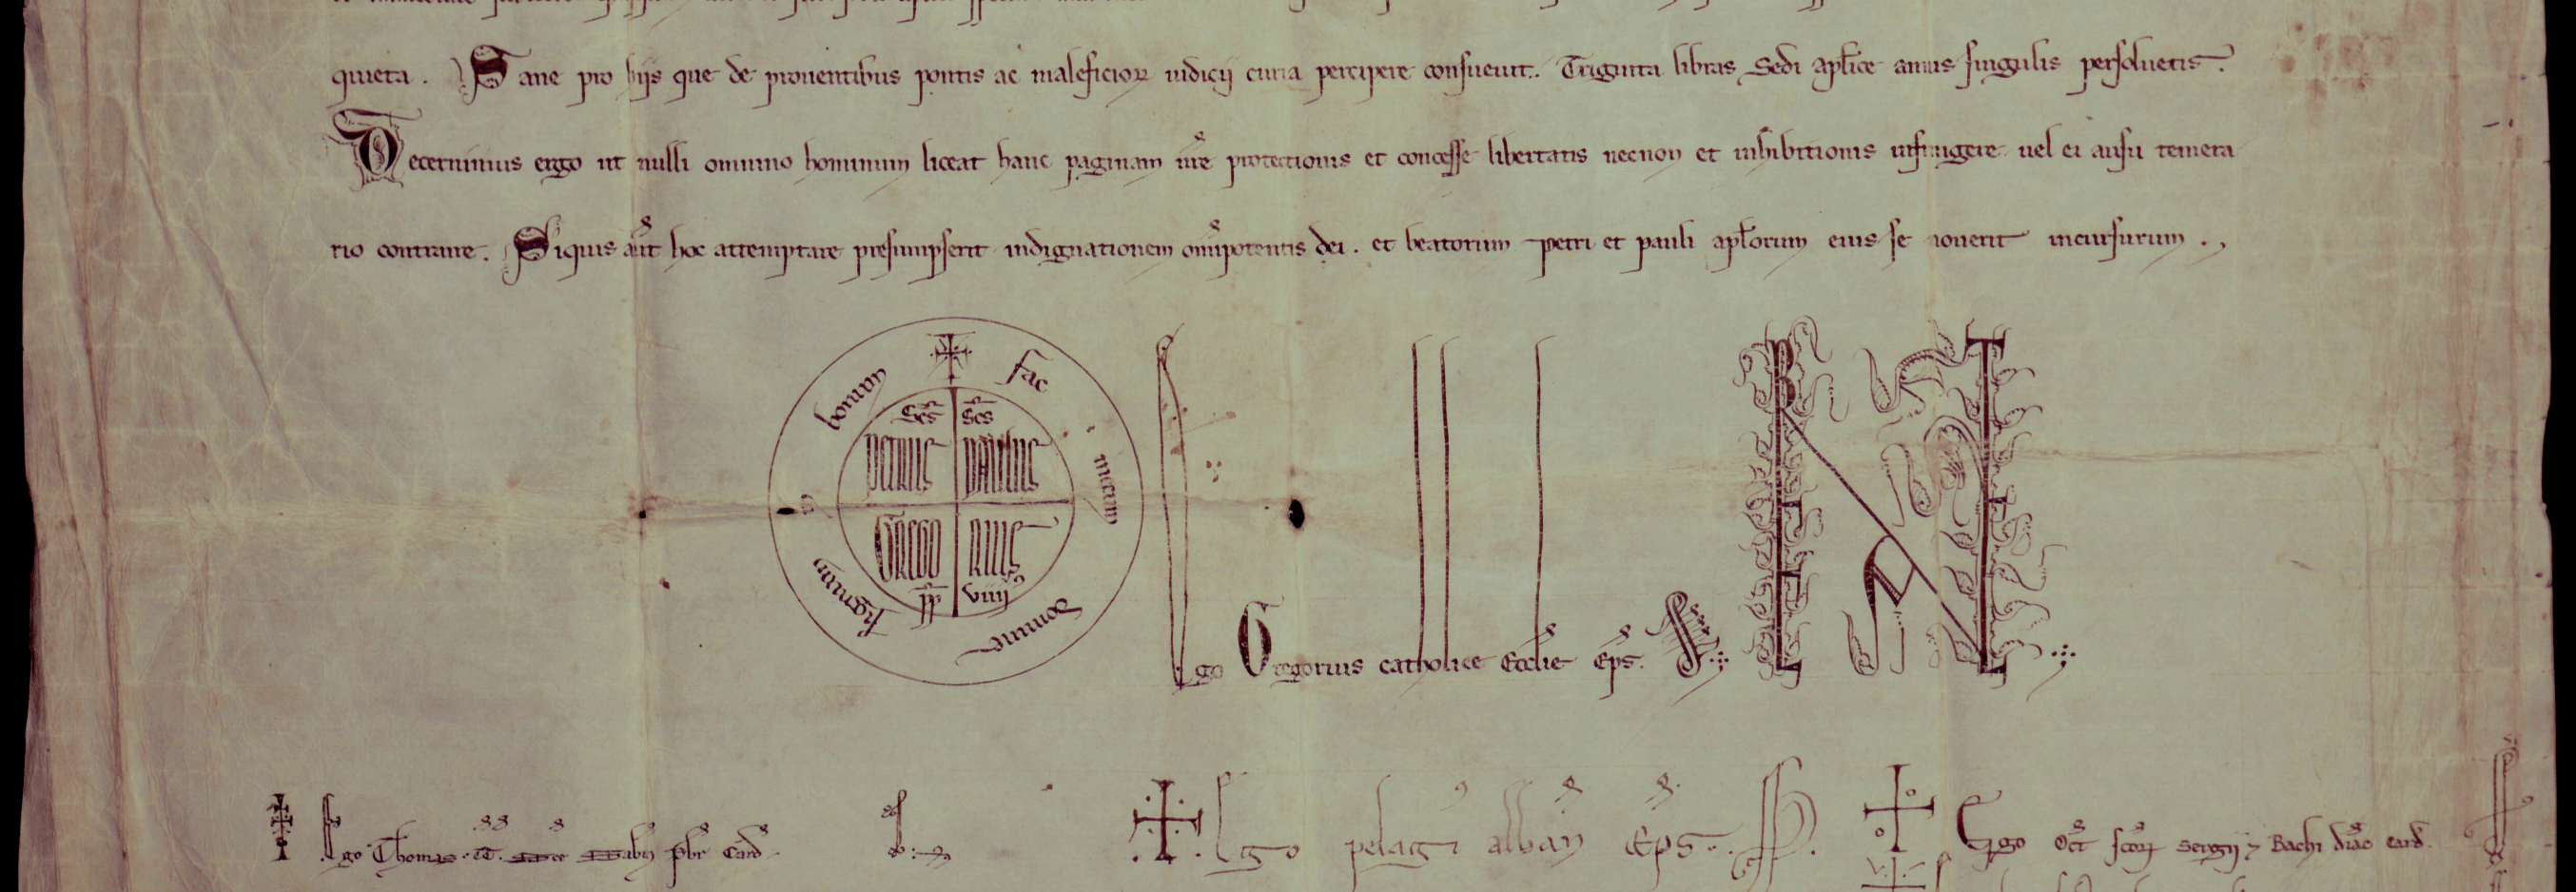 quieta. Sane pro hiis que de prouentibus pontis ac maleficioꝝ iudicij curia percipere consueuit. Triginta libras Sedi apl̄ice annis singulis persoluetis.
Decernimus ergo ut nulli omnino hominum liceat hanc paginam nr̄e protectionis et concesse libertatis necnon et inhibitionis infringere uel ei ausu temera
rio contraire. Siquis aūt hoc attemptare presumpserit indignationem omīpotentis dei. et beatorum Petri et pauli apl̄orum eius se nouerit incursurum.
fac mecum domine signum bonum
Scs Petrus Scs Paulus Gregorius pp viiij
Ego Gregorius catholice Eccl̄ie Ep̄s.
Ego Thomas tt. Sce Sabin pbr Card
Ego pelagi alban Ep̄s.
Ego Oct scoꝝ Sergij ⁊ Bachi diac card